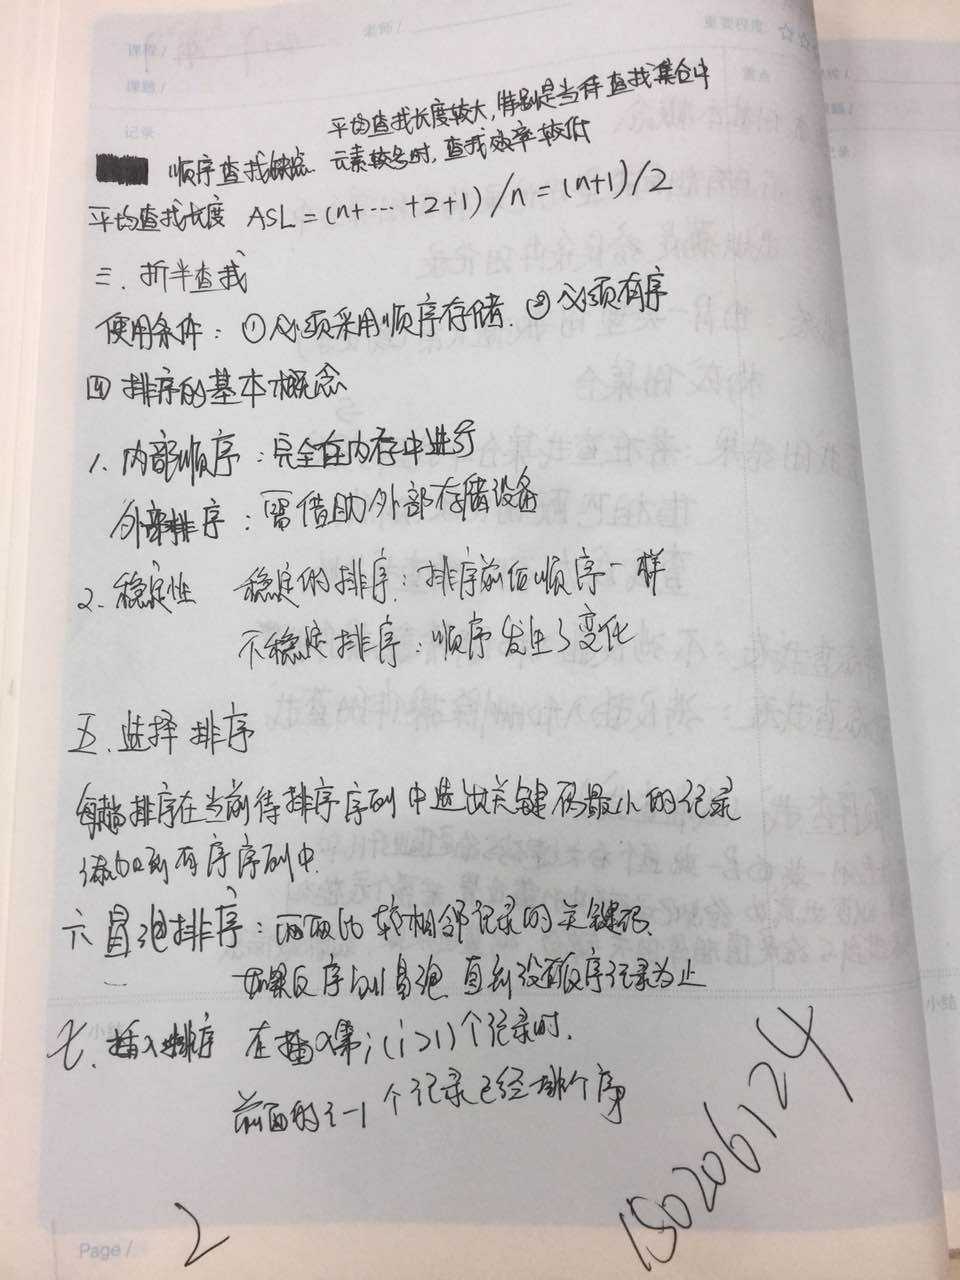 课程 /
老师 /
重要程度 ☆☆
课题 /
记录
平均查找长度较大,特别是当待查找集合中
顺序查找缺点 元素较多时,查找效率较低
平均查找长度 ASL=(n+…+2+1)/n=(n+1)/2
三.折半查找
使用条件:①必须采用顺序存储.②必须有序
四 排序的基本概念
1.内部顺序:完全在内存中进行
外部排序:需借助外部存储设备
2.稳定性 稳定的排序:排序前后顺序一样
不稳定排序:顺序发生了变化
五.选择排序
每趟排序在当前待排序序列中选出关键码最小的记录
添加到有序序列中.
六 冒泡排序:两两比较相邻记录的关键码.
如果反序则冒泡 直到没有反序记录为止
七.插入排序 在插入第i(i>1)个记录时.
前面的i-1个记录已经排个序
小结
Page / 2
150206124